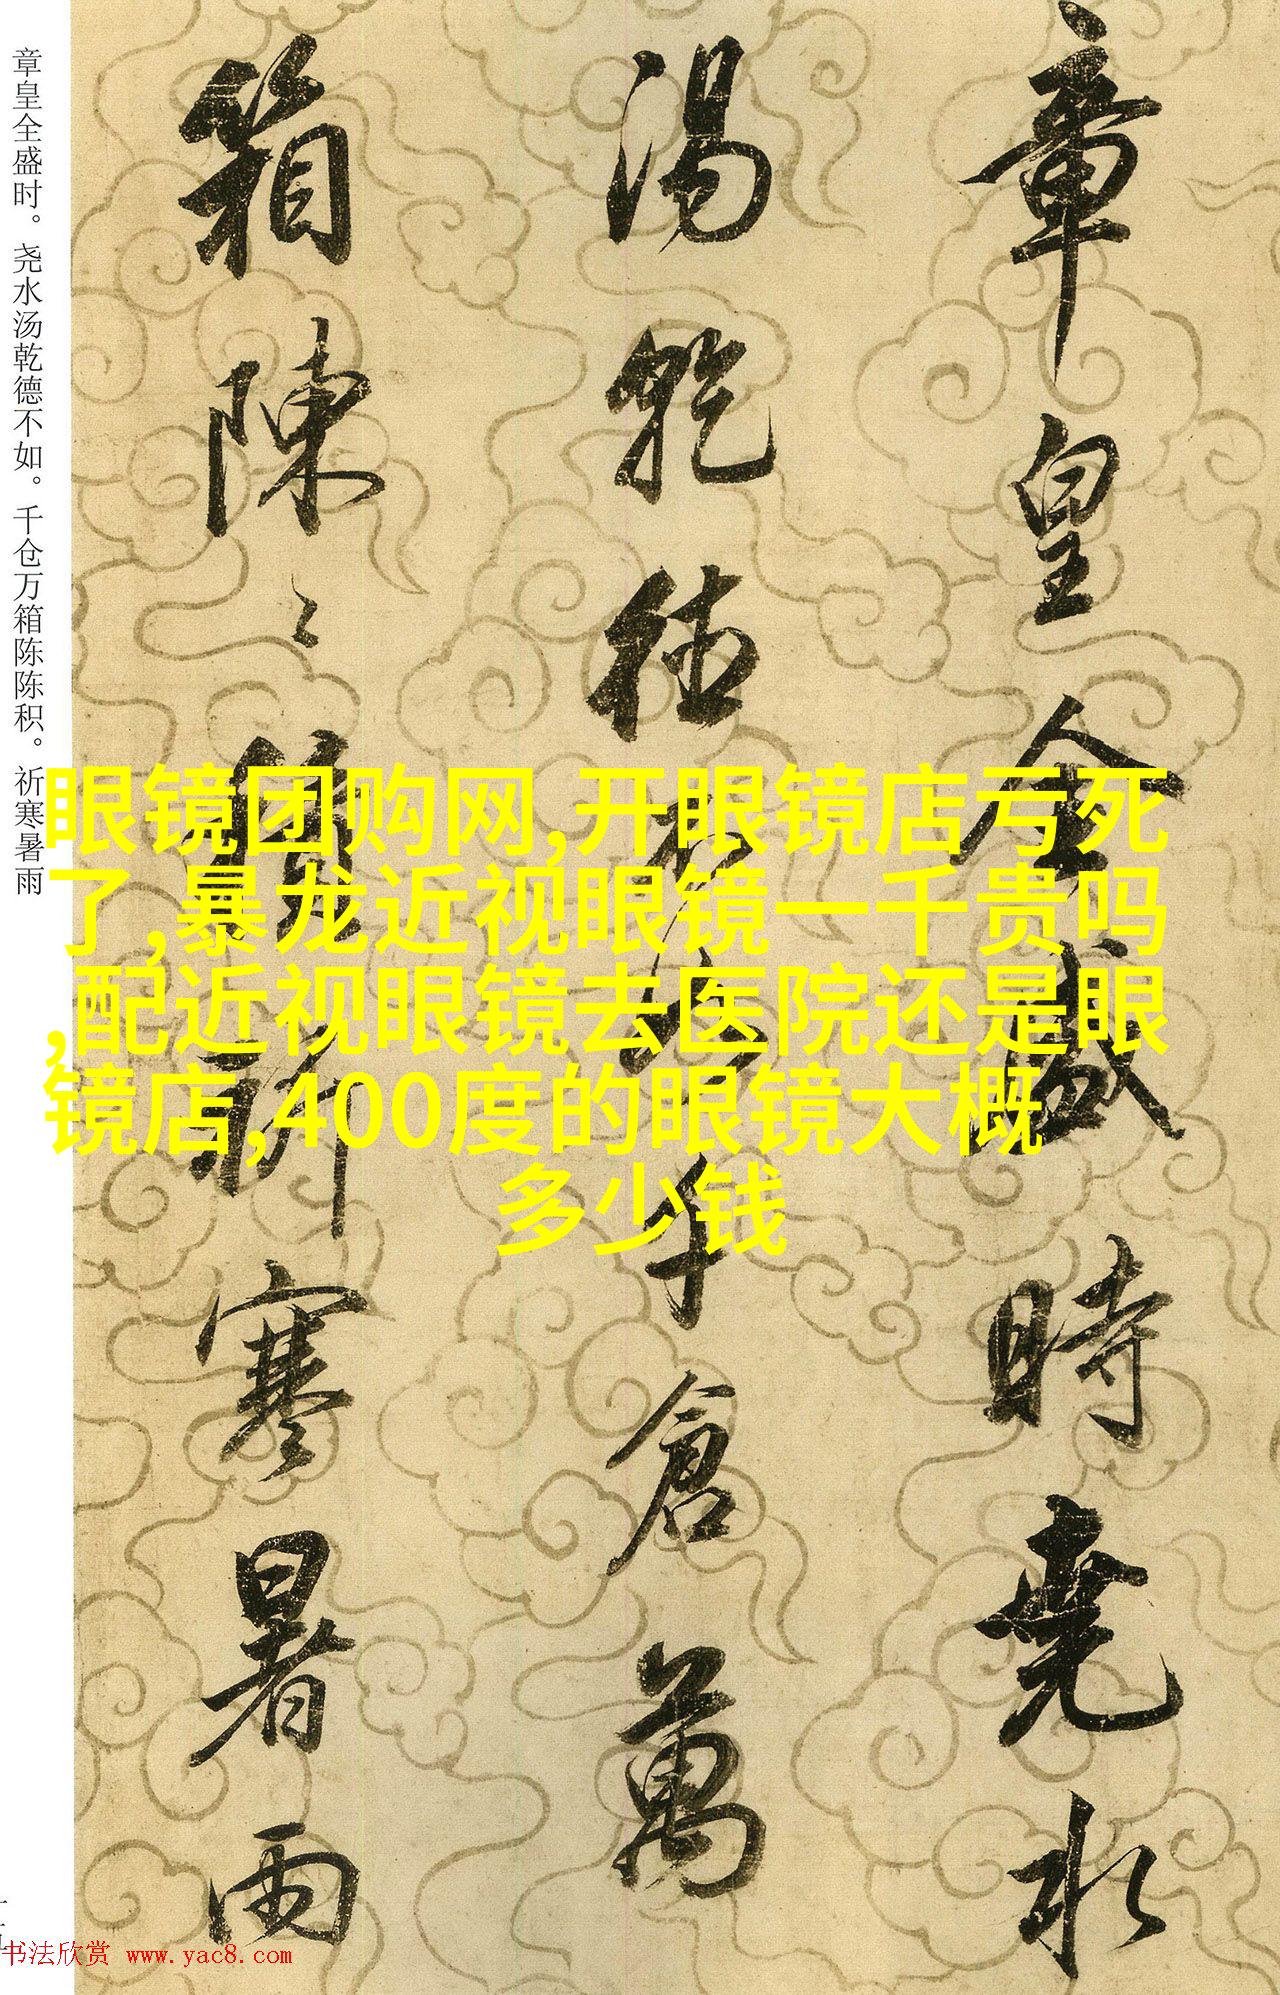 章皇全盛時堯水
湯乾德不如千倉萬
箱陳〻積祈寒暑雨
章皇全盛时。尧水汤乾德不如。千仓万箱陈陈积。祈寒暑雨
眼镜团购网,开眼镜店亏死
了,暴龙近视眼镜一千贵吗
,配近视眼镜去医院还是眼
镜店,400度的眼镜大概
多少钱
书法欣赏 www.yac8.com